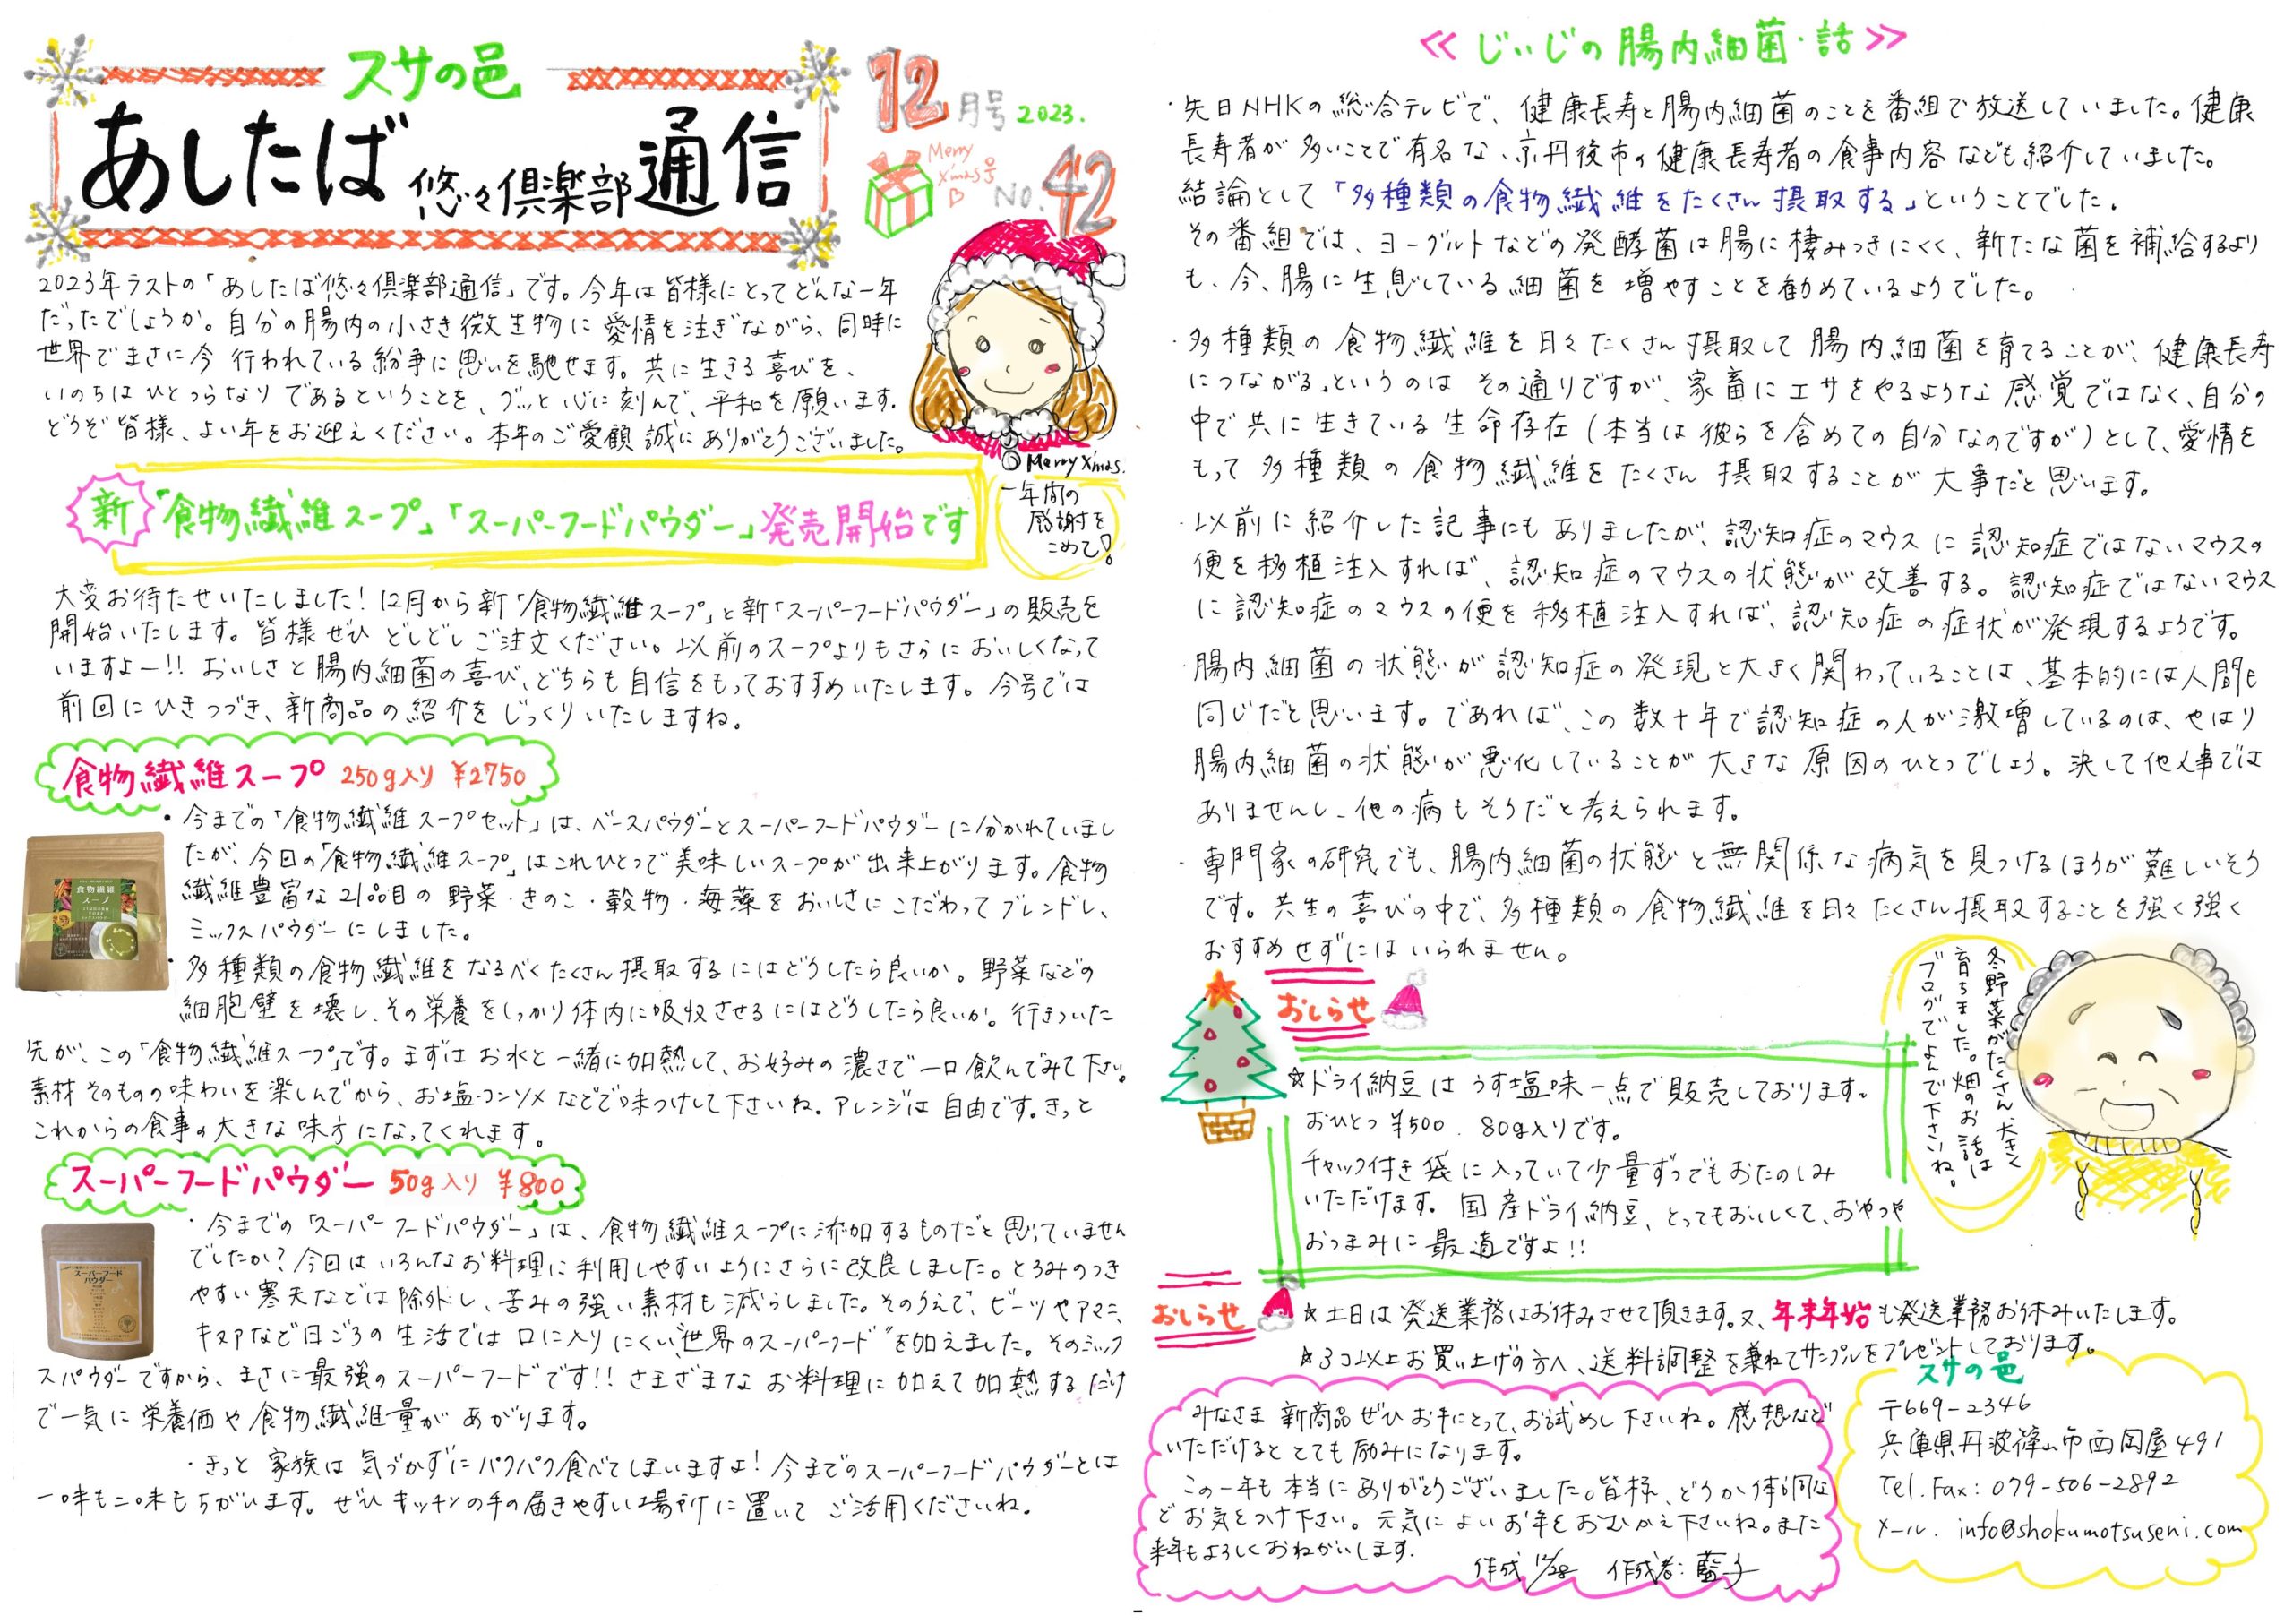 スサの邑
あしたば悠々倶楽部通信
12月号 2023.
Merry
X'mas号
No.42
2023年ラストの「あしたば悠々倶楽部通信」です。今年は皆様にとってどんな一年
だったでしょうか。自分の腸内の小さき微生物に愛情を注ぎながら、同時に
世界でまさに今行われている紛争に思いを馳せます。共に生きる喜びを、
いのちはひとつらなりであるということを、グッと心に刻んで、平和を願います。
どうぞ皆様、よい年をお迎えください。本年のご愛顧誠にありがとうございました。
Merry X'mas.
一年間の
感謝を
こめて!
新「食物繊維スープ」「スーパーフードパウダー」発売開始です
大変お待たせいたしました!12月から新「食物繊維スープ」と新「スーパーフードパウダー」の販売を
開始いたします。皆様ぜひどしどしご注文ください。以前のスープよりもさらにおいしくなって
いますよー!!おいしさと腸内細菌の喜び、どちらも自信をもっておすすめいたします。今号では
前回にひきつづき、新商品の紹介をじっくりいたしますね。
食物繊維スープ 250g入り ¥2750
・今までの「食物繊維スープセット」は、ベースパウダーとスーパーフードパウダーに分かれていまし
たが、今回の「食物繊維スープ」はこれひとつで美味しいスープが出来上がります。食物
繊維豊富な21品目の野菜・きのこ・穀物・海藻をおいしさにこだわってブレンドし、
ミックスパウダーにしました。
・多種類の食物繊維をなるべくたくさん摂取するにはどうしたら良いか。野菜などの
細胞壁を壊し、その栄養をしっかり体内に吸収させるにはどうしたら良いか。行きついた
先が、この「食物繊維スープ」です。まずはお水と一緒に加熱して、お好みの濃さで一口飲んでみて下さい。
素材そのものの味わいを楽しんでから、お塩・コンソメなどで味つけして下さいね。アレンジは自由です。きっと
これからの食事の大きな味方になってくれます。
食物繊維
スープ
スーパーフードパウダー 50g入り ¥800
・今までの「スーパーフードパウダー」は、食物繊維スープに添加するものだと思っていません
でしたか?今回はいろんなお料理に利用しやすいようにさらに改良しました。とろみのつき
やすい寒天などは除外し、苦みの強い素材も減らしました。そのうえで、ビーツやアマニ、
キヌアなど日ごろの生活では口に入りにくい“世界のスーパーフード”を加えました。そのミック
スパウダーですから、まさに最強のスーパーフードです!!さまざまなお料理に加えて加熱するだけ
で一気に栄養価や食物繊維量があがります。
・きっと家族は気づかずにパクパク食べてしまいますよ!今までのスーパーフードパウダーとは
一味も二味もちがいます。ぜひキッチンの手の届きやすい場所に置いてご活用くださいね。
スーパーフード
パウダー
≪じぃじの腸内細菌・話≫
・先日NHKの総合テレビで、健康長寿と腸内細菌のことを番組で放送していました。健康
長寿者が多いことで有名な、京丹後市の健康長寿者の食事内容なども紹介していました。
結論として「多種類の食物繊維をたくさん摂取する」ということでした。
その番組では、ヨーグルトなどの発酵菌は腸に棲みつきにくく、新たな菌を補給するより
も、今、腸に生息している細菌を増やすことを勧めているようでした。
・多種類の食物繊維を日々たくさん摂取して腸内細菌を育てることが、健康長寿
につながる」というのはその通りですが、家畜にエサをやるような感覚ではなく、自分の
中で共に生きている生命存在(本当は彼らを含めての自分なのですが)として、愛情を
もって多種類の食物繊維をたくさん摂取することが大事だと思います。
・以前に紹介した記事にもありましたが、認知症のマウスに認知症ではないマウスの
便を移植注入すれば、認知症のマウスの状態が改善する。認知症ではないマウス
に認知症のマウスの便を移植注入すれば、認知症の症状が発現するようです。
・腸内細菌の状態が認知症の発現と大きく関わっていることは、基本的には人間も
同じだと思います。であれば、この数十年で認知症の人が激増しているのは、やはり
腸内細菌の状態が悪化していることが大きな原因のひとつでしょう。決して他人事では
ありませんし、他の病もそうだと考えられます。
・専門家の研究でも、腸内細菌の状態と無関係な病気を見つけるほうが難しいそう
です。共生の喜びの中で、多種類の食物繊維を日々たくさん摂取することを強く強く
おすすめせずにはいられません。
冬野菜がたくさん大きく
育ちました。畑のお話は
ブログでよんで下さいね。
おしらせ
☆ドライ納豆はうす塩味一点で販売しております。
おひとつ¥500. 80g入りです。
チャック付き袋に入っていて少量ずつでもおたのしみ
いただけます。国産ドライ納豆、とってもおいしくて、おやつや
おつまみに最適ですよ!!
おしらせ
☆土日は発送業務はお休みさせて頂きます。又、年末年始も発送業務お休みいたします。
☆3コ以上お買い上げの方へ、送料調整を兼ねてサンプルをプレゼントしております。
みなさま新商品ぜひお手にとって、お試めし下さいね。感想など
いただけるととても励みになります。
この一年も本当にありがとうございました。皆様、どうか体調な
どお気をつけ下さい。元気によいお年をおむかえ下さいね。また
来年もよろしくおねがいします。
作成 12/28 作成者:藍子
スサの邑
〒669-2346
兵庫県丹波篠山市西岡屋491
Tel.Fax:079-506-2892
メール. info@shokumotsuseni.com